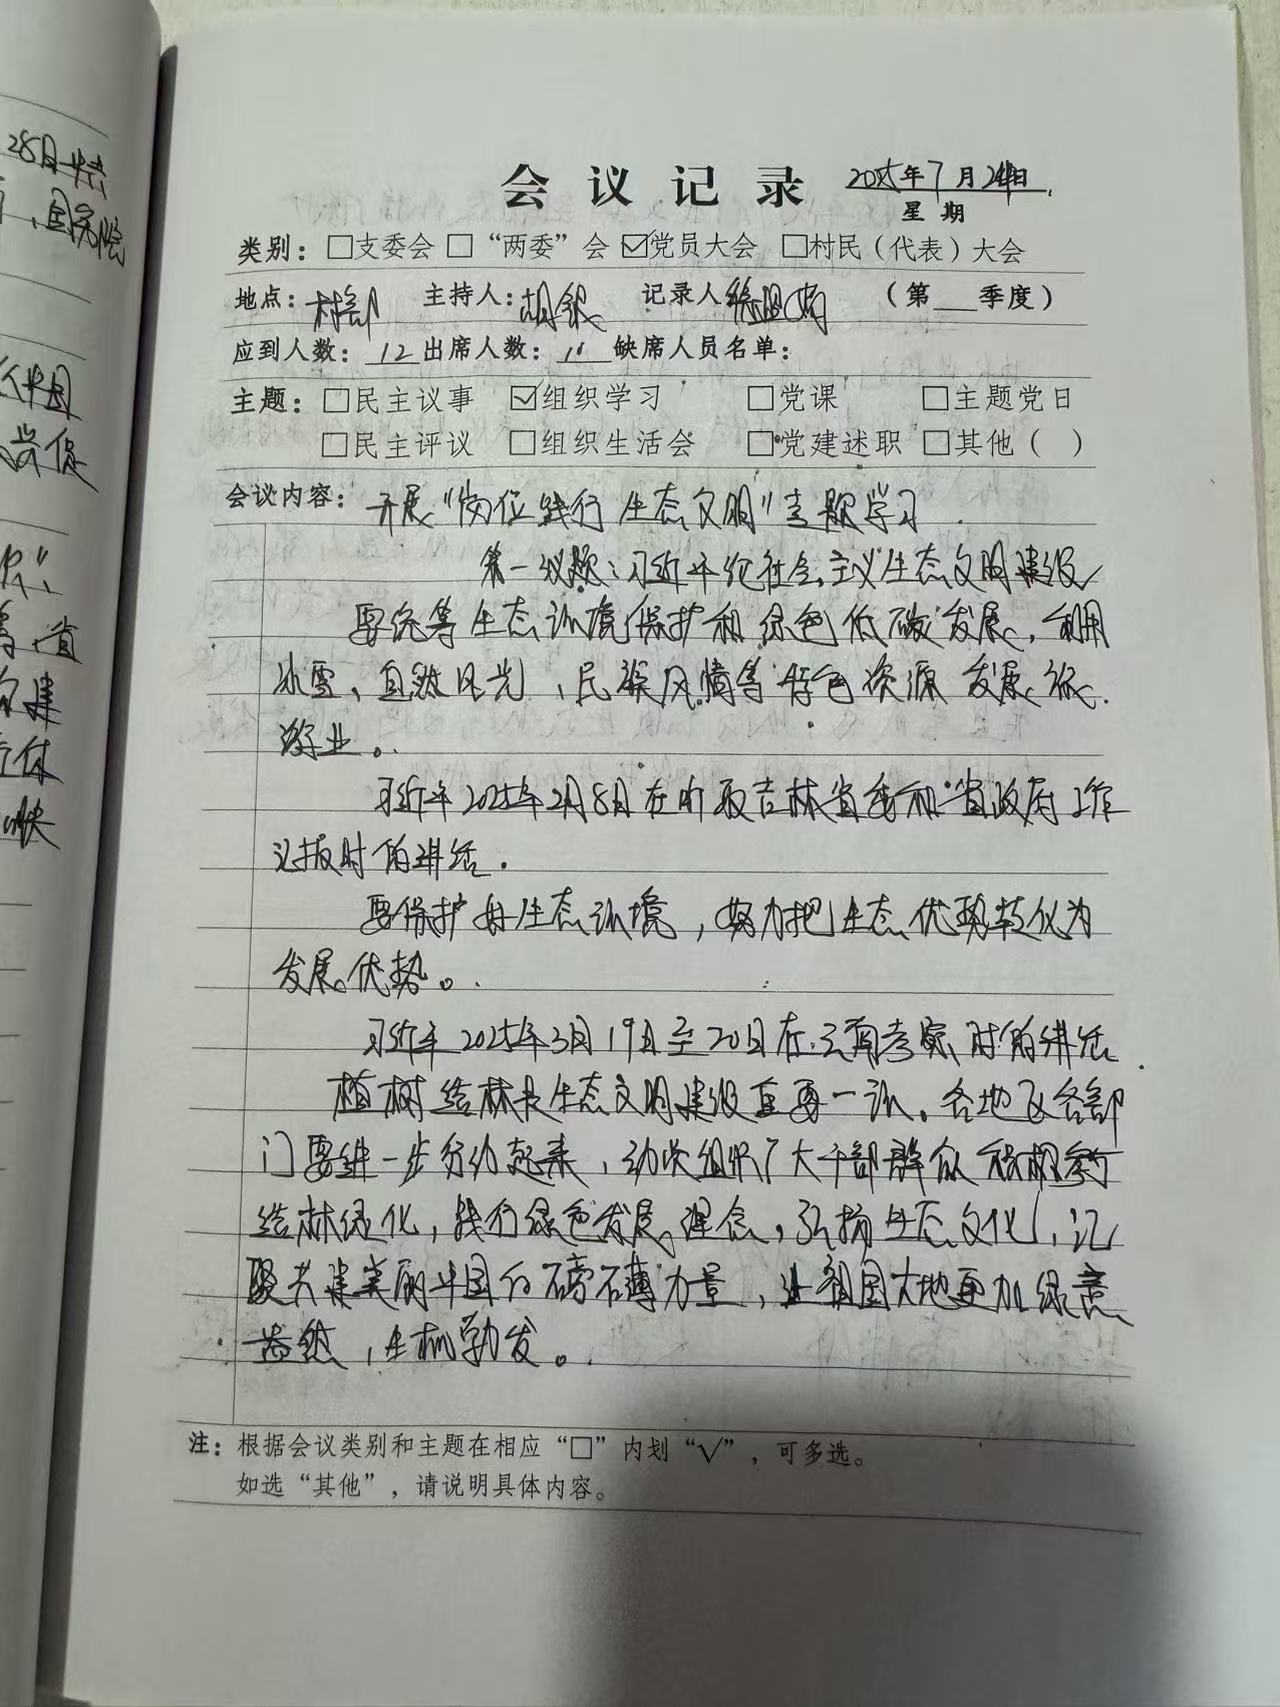 28日
、国务院
中国
会议记录 2025年7月24日
星期
类别：□支委会 □“两委”会 ☑党员大会 □村民（代表）大会
地点：村部 主持人：胡银 记录人 （第 季度）
应到人数：12 出席人数：11 缺席人员名单：
主题：□民主议事 ☑组织学习 □党课 □主题党日
□民主评议 □组织生活会 □党建述职 □其他（ ）
会议内容：开展“岗位践行生态文明”主题学习
第一议题：习近平论社会主义生态文明建设
要统筹生态环境保护和绿色低碳发展，利用
冰雪、自然风光、民族风情等特色资源发展旅
游业。
习近平2025年2月8日在听取吉林省委和省政府工作
汇报时的讲话.
要保护好生态环境，努力把生态优势转化为
发展优势。
习近平2025年3月19日至20日在云南考察时的讲话
植树造林是生态文明建设重要一环。各地区各部
门要进一步行动起来，动员组织广大干部群众积极参与
造林绿化，践行绿色发展理念，弘扬生态文化，汇
聚共建美丽中国的磅礴力量，让祖国大地更加绿意
盎然，生机勃发。
注：根据会议类别和主题在相应“□”内划“√”，可多选。
如选“其他”，请说明具体内容。